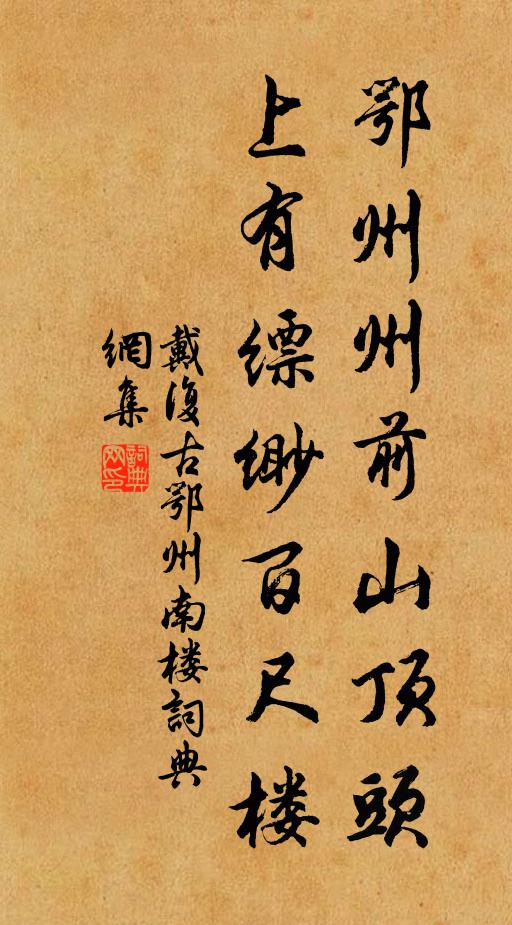 鄂州州前山頂頭
上有縹緲百尺楼
戴復古鄂州南楼詞典
網集
詞典
网印